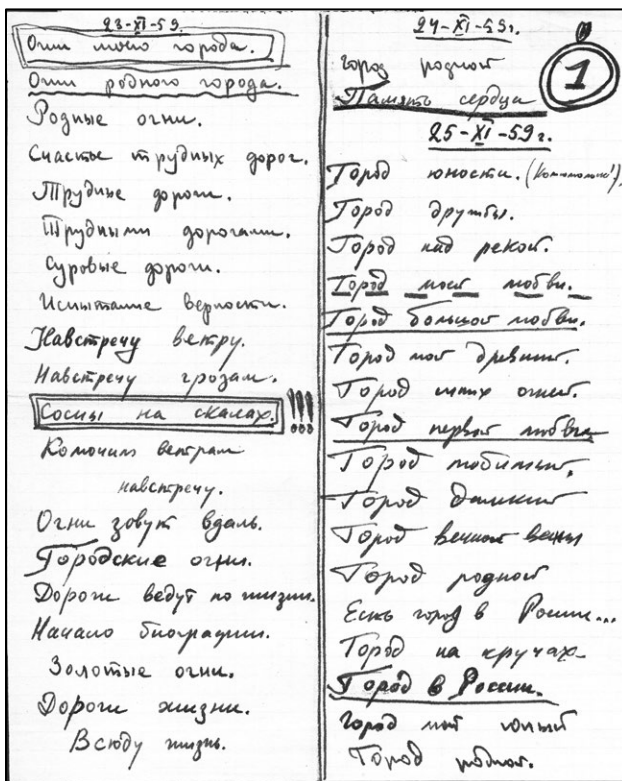 23-XI-59.
Огни моего города.
Огни родного города.
Родные огни.
Счастье трудных дорог.
Трудные дороги.
Трудными дорогами.
Суровые дороги.
Испытание верности.
Навстречу ветру.
Навстречу грозам.
Сосны на скалах. !!!
Колючим ветрам
навстречу.
Огни зовут вдаль.
Городские огни.
Дороги ведут по жизни.
Начало биографии.
Золотые огни.
Дороги жизни.
Всюду жизнь.
24-XI-59г.
Город родной
1
Память сердца
25-XI-59г.
Город юности.
Город дружбы.
Город над рекой.
Город моей любви.
Город большой любви.
Город мой древний.
Город огней.
Город первой любви
Город любимый.
Город далекий
Город вечной весны
Город родной
Есть город в России...
Город на кручах
Город в России.
Город мой юный
Город родной.